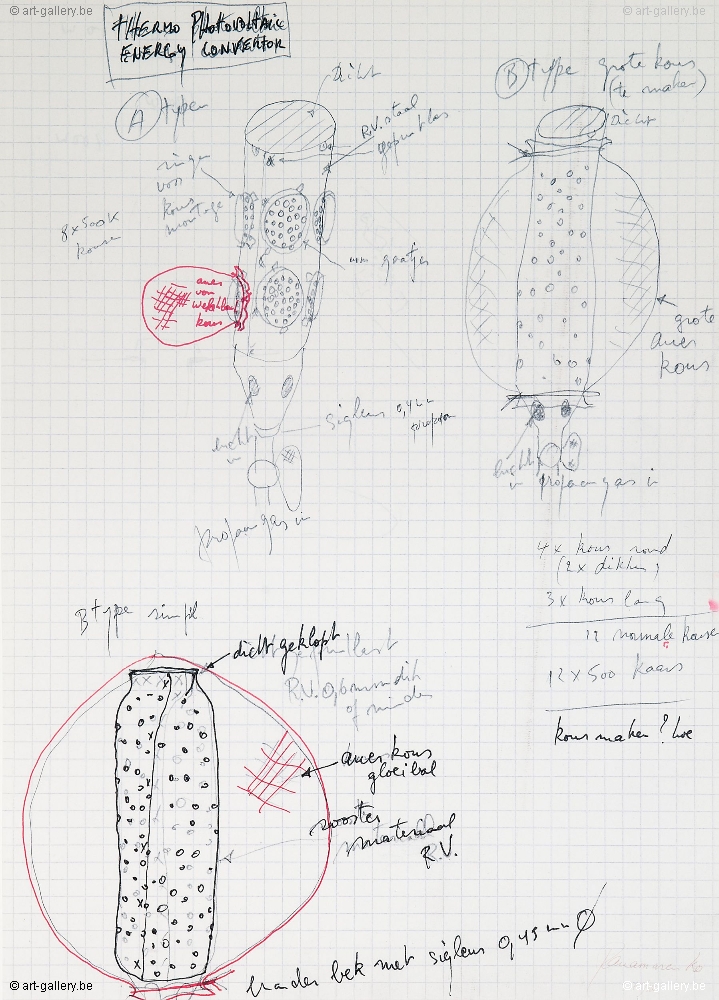 © art-gallery.be
© art-gallery.be
tHERMO PHotoVoltAic
ENERGY CONVERTOR
Dicht
A type
B type grote kous
(te maken)
Dicht
R.V. staal
ringen
voor
kous
montage
8 x 500 K
kousen
gaatjes
auer
kous
grote
auer
kous
sigleur 0,42
lucht
in
propaan gas in
lucht
in
propaan gas in
4x kous rond
3x kous lang
12 normale kous
12 x 500 kaars
kous maken? hoe
B type simpel
dicht geklopt
R.V. 0,6 mm dik
of minder
auer kous
gloeibol
rooster
materiaal
R.V.
brander bek met sigleur 0,45 mm Ø
© art-gallery.be
© art-gallery.be